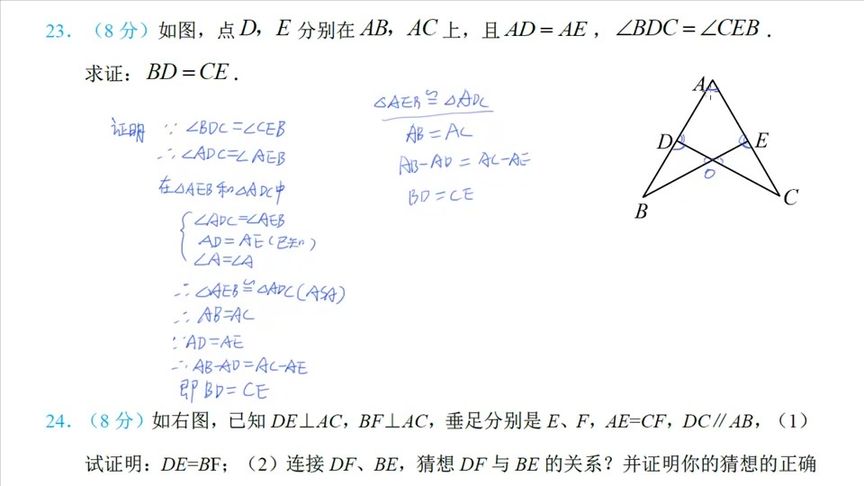 23. （8 分）如图，点 D，E 分别在 AB，AC 上，且 AD = AE ，∠BDC = ∠CEB .
求证： BD = CE .
证明 ∵ ∠BDC=∠CEB
∴ ∠ADC=∠AEB
在△AEB和△ADC中
∠ADC=∠AEB
AD=AE(已知)
∠A=∠A
∴ △AEB≌△ADC(ASA)
∴ AB=AC
∵ AD=AE
∴ AB-AD=AC-AE
即 BD=CE
△AEB≌△ADC
AB=AC
AB-AD=AC-AE
BD=CE
A
D
E
O
B
C
24. （8 分）如右图，已知 DE⊥AC，BF⊥AC，垂足分别是 E、F，AE=CF，DC∥AB，（1）
试证明：DE=BF；（2）连接 DF、BE，猜想 DF 与 BE 的关系？并证明你的猜想的正确